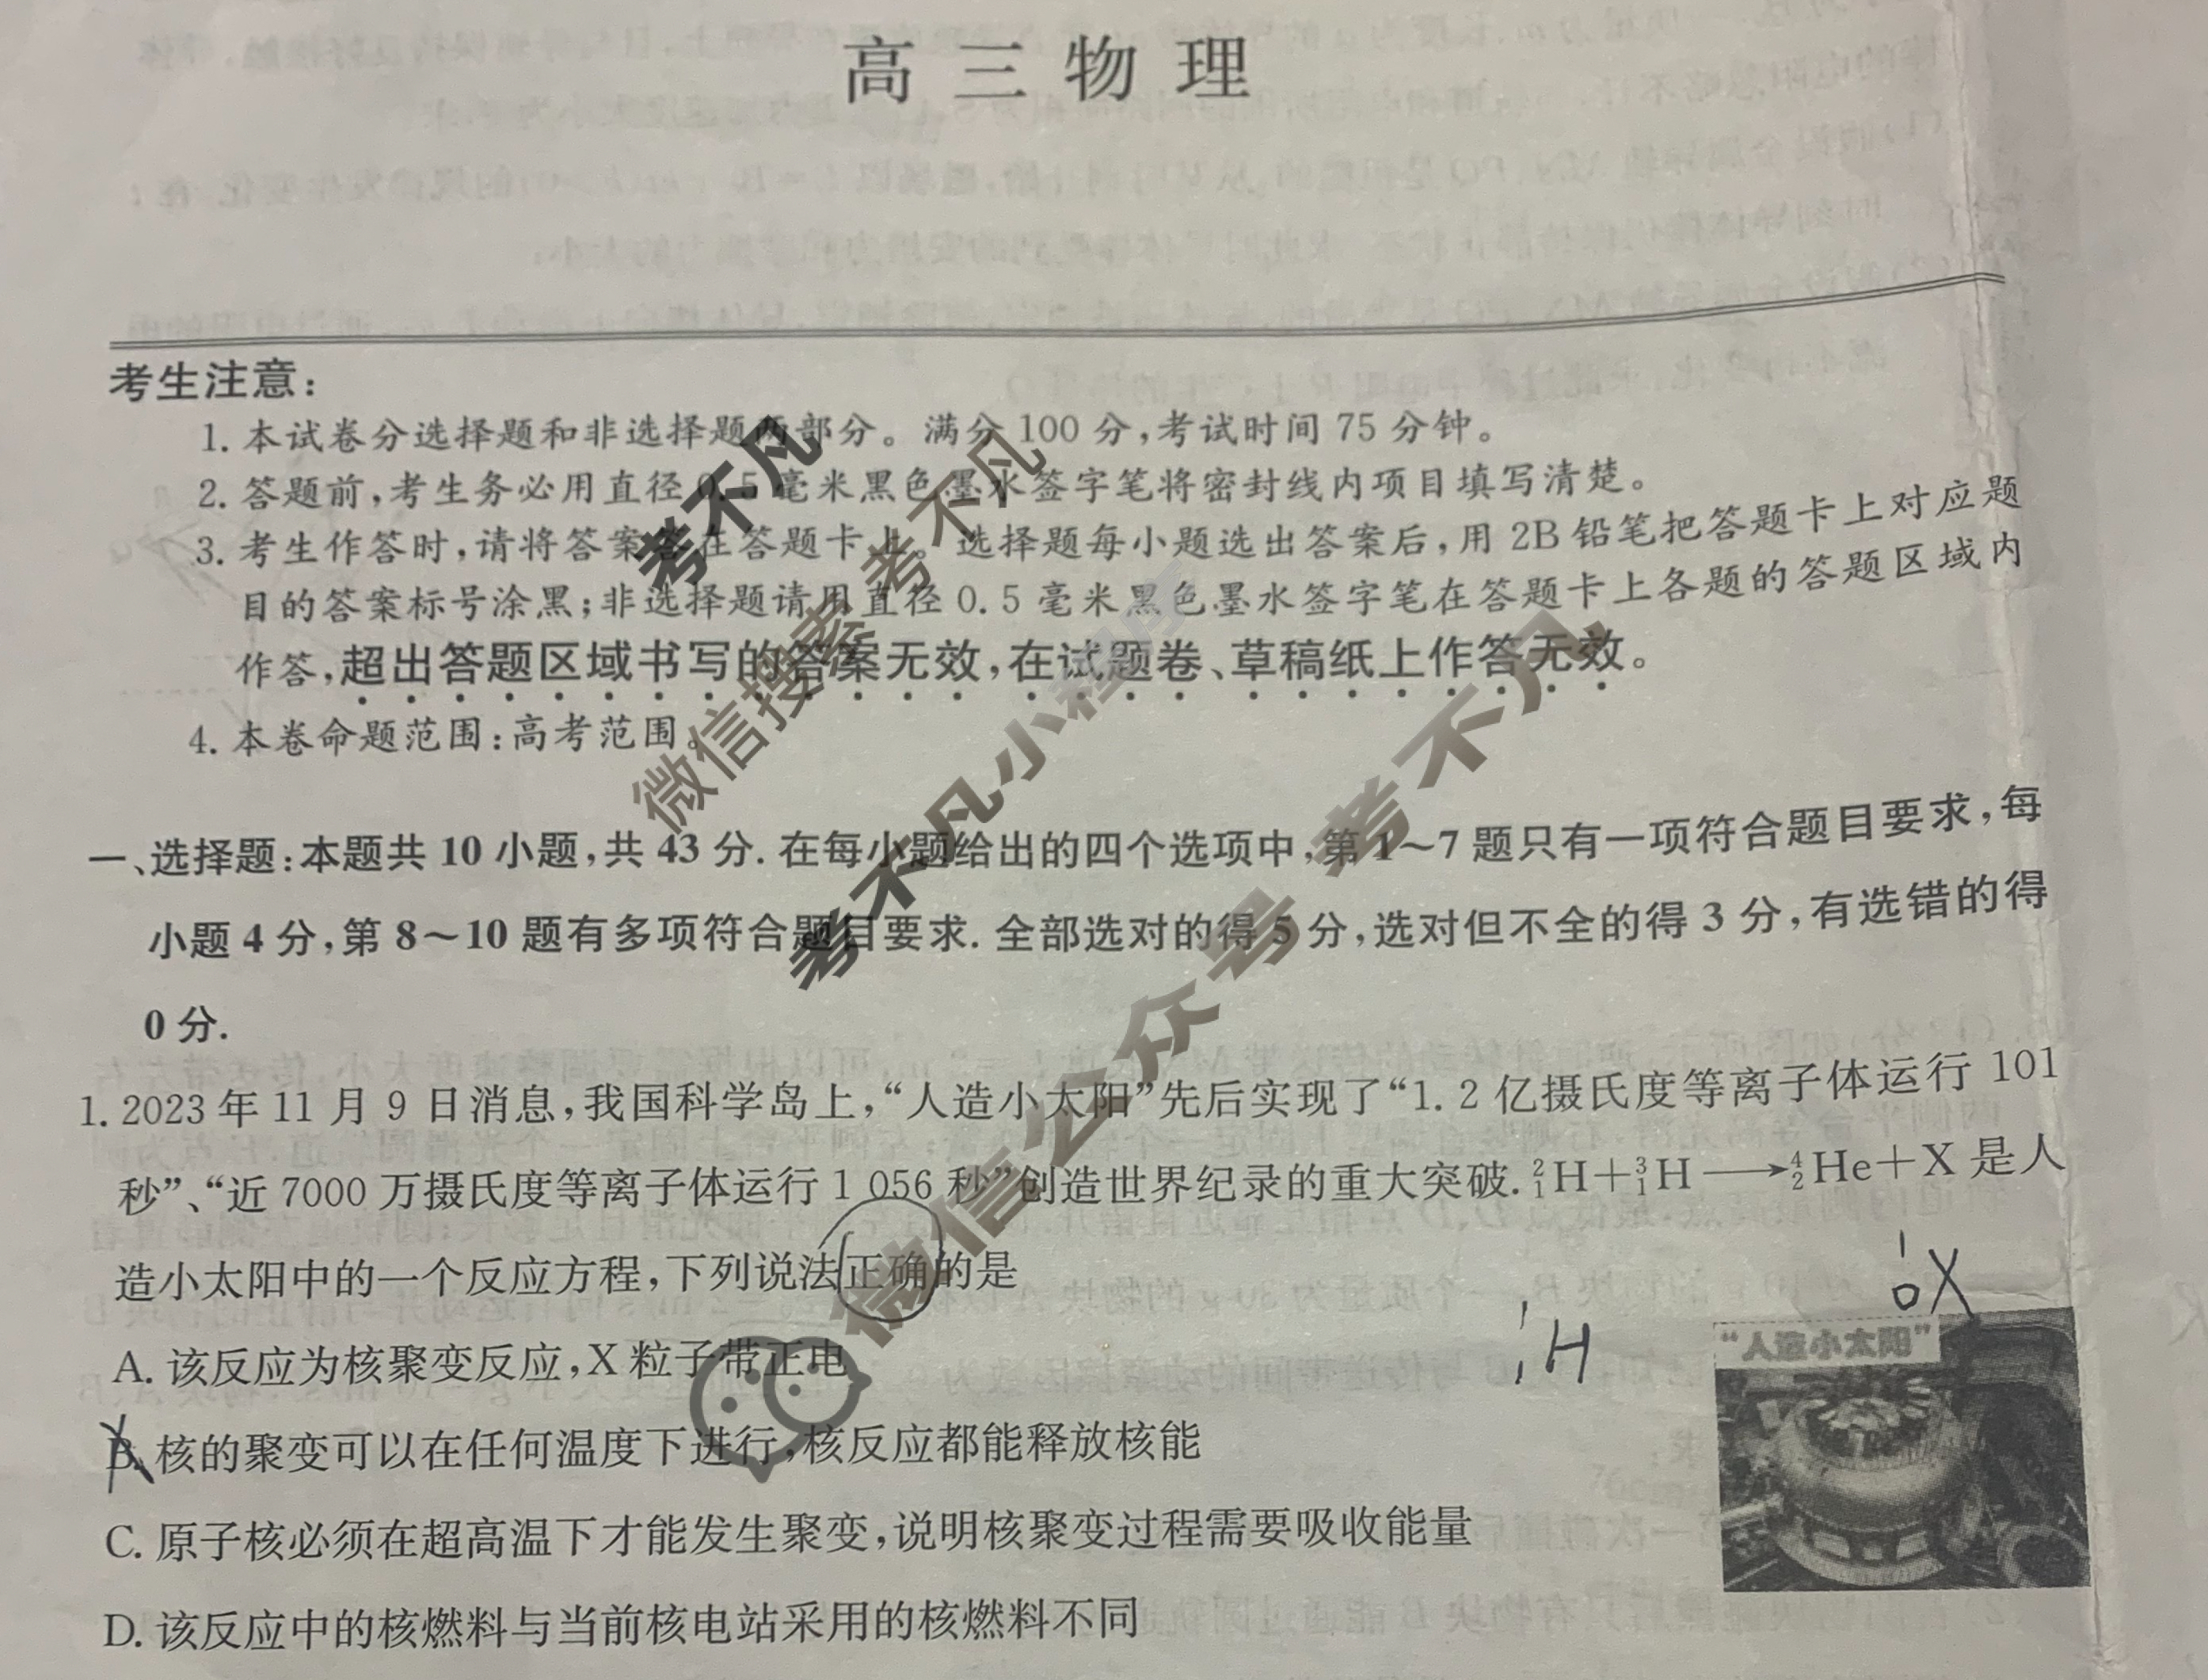 高三物理
考生注意:
1. 本试卷分选择题和非选择题两部分。满分 100 分,考试时间 75 分钟。
2. 答题前,考生务必用直径 0.5 毫米黑色墨水签字笔将密封线内项目填写清楚。
3. 考生作答时,请将答案答在答题卡上。选择题每小题选出答案后,用 2B 铅笔把答题卡上对应题
目的答案标号涂黑;非选择题请用直径 0.5 毫米黑色墨水签字笔在答题卡上各题的答题区域内
作答,超出答题区域书写的答案无效,在试题卷、草稿纸上作答无效。
4. 本卷命题范围:高考范围。
一、选择题:本题共 10 小题,共 43 分. 在每小题给出的四个选项中,第 1～7 题只有一项符合题目要求,每
小题 4 分,第 8～10 题有多项符合题目要求. 全部选对的得 5 分,选对但不全的得 3 分,有选错的得
0 分.
1. 2023 年 11 月 9 日消息,我国科学岛上,“人造小太阳”先后实现了“1. 2 亿摄氏度等离子体运行 101
秒”、“近 7000 万摄氏度等离子体运行 1 056 秒”创造世界纪录的重大突破. ²₁H+³₁H⟶⁴₂He+X 是人
造小太阳中的一个反应方程,下列说法正确的是
¹₀X
¹₁H
“人造小太阳”
A. 该反应为核聚变反应,X 粒子带正电
B. 核的聚变可以在任何温度下进行,核反应都能释放核能
C. 原子核必须在超高温下才能发生聚变,说明核聚变过程需要吸收能量
D. 该反应中的核燃料与当前核电站采用的核燃料不同
考不凡
微信搜索 考不凡
考不凡小程序
微信公众号 考不凡